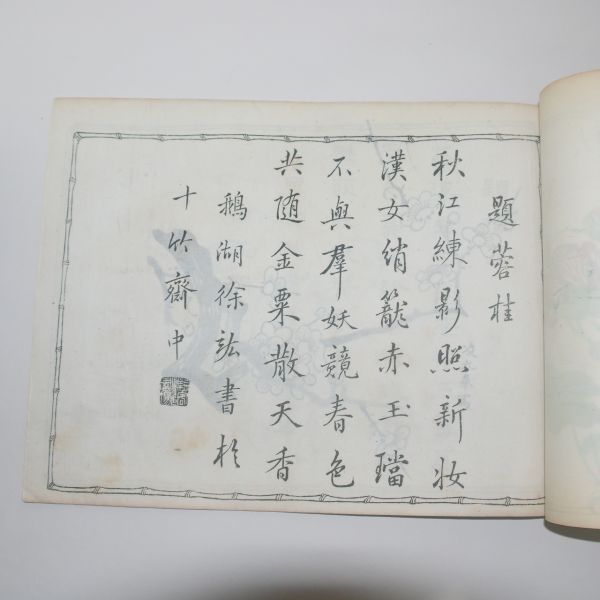 題蓉桂
秋江練影照新妝
漢女綃籠赤玉璫
不與羣妖競春色
共隨金粟散天香
鵝湖徐
書於
十竹齋中